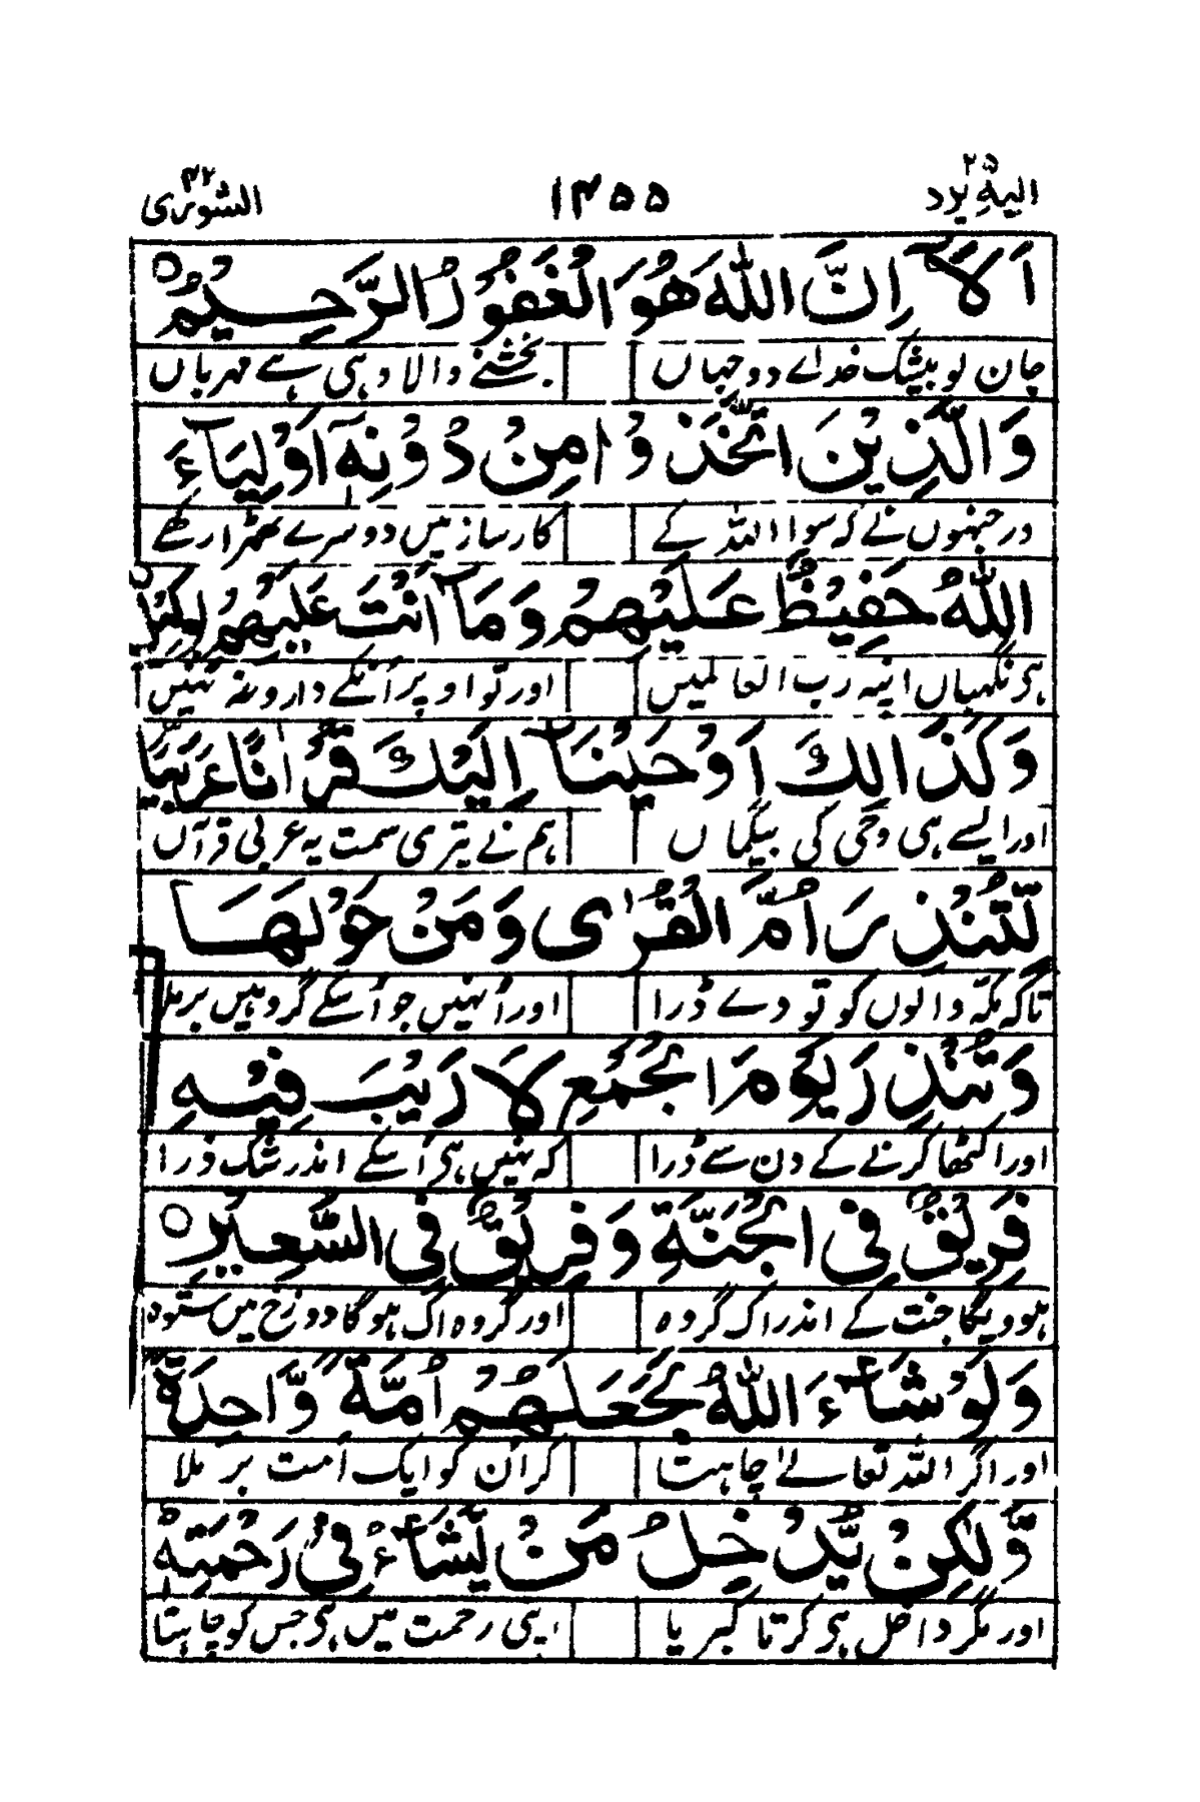 الیہ یرد ۲۵ ۱۴۵۵ الشوریٰ ۴۲
اَلَآ اِنَّ اللّٰهَ هُوَ الْغَفُوْرُ الرَّحِيْمُ ○
جان لو بیشک خدائے دو جہاں بخشنے والا وہی ہے مہرباں
وَالَّذِيْنَ اتَّخَذُوْا مِنْ دُوْنِهٖۤ اَوْلِيَآءَ
ور جنہوں نے کہ سوا اللہ کے کارساز میں دوسرے ٹھہرا رکھے
اللّٰهُ حَفِيْظٌ عَلَيْهِمْ وَمَآ اَنْتَ عَلَيْهِمْ بِوَكِيْلٍ ○
ہے نگہباں انپہ رب العالمیں اور تو اوپر اُنکے داروغہ نہیں
وَكَذٰلِكَ اَوْحَيْنَآ اِلَيْكَ قُرْاٰنًا عَرَبِيًّا
اور ایسے ہی وحی کی بیگماں ہم نے تیری سمت یہ عربی قرآں
لِّتُنْذِرَ اُمَّ الْقُرٰى وَمَنْ حَوْلَهَا
تاکہ مکہ والوں کو تو دے ڈرا اور اُنہیں جو اُسکے گرد ہیں برملا
وَتُنْذِرَ يَوْمَ الْجَمْعِ لَا رَيْبَ فِيْهِ
اور اکٹھا کرنے کے دن سے ڈرا کہ نہیں ہے اُسکے اندر شک ذرا
فَرِيْقٌ فِى الْجَنَّةِ وَفَرِيْقٌ فِى السَّعِيْرِ ○
ہوویگا جنت کے اندر اک گروہ اور گروہ اک ہوگا دوزخ میں ستوہ
وَلَوْ شَآءَ اللّٰهُ لَجَعَلَهُمْ اُمَّةً وَّاحِدَةً
اور اگر اللہ تعالےٰ چاہتا کر اُن کو ایک اُمت بر ملا
وَّلٰكِنْ يُّدْخِلُ مَنْ يَّشَآءُ فِىْ رَحْمَتِهٖ
اور مگر داخل ہے کرتا کبریا اپنی رحمت میں ہے جس کو چاہتا